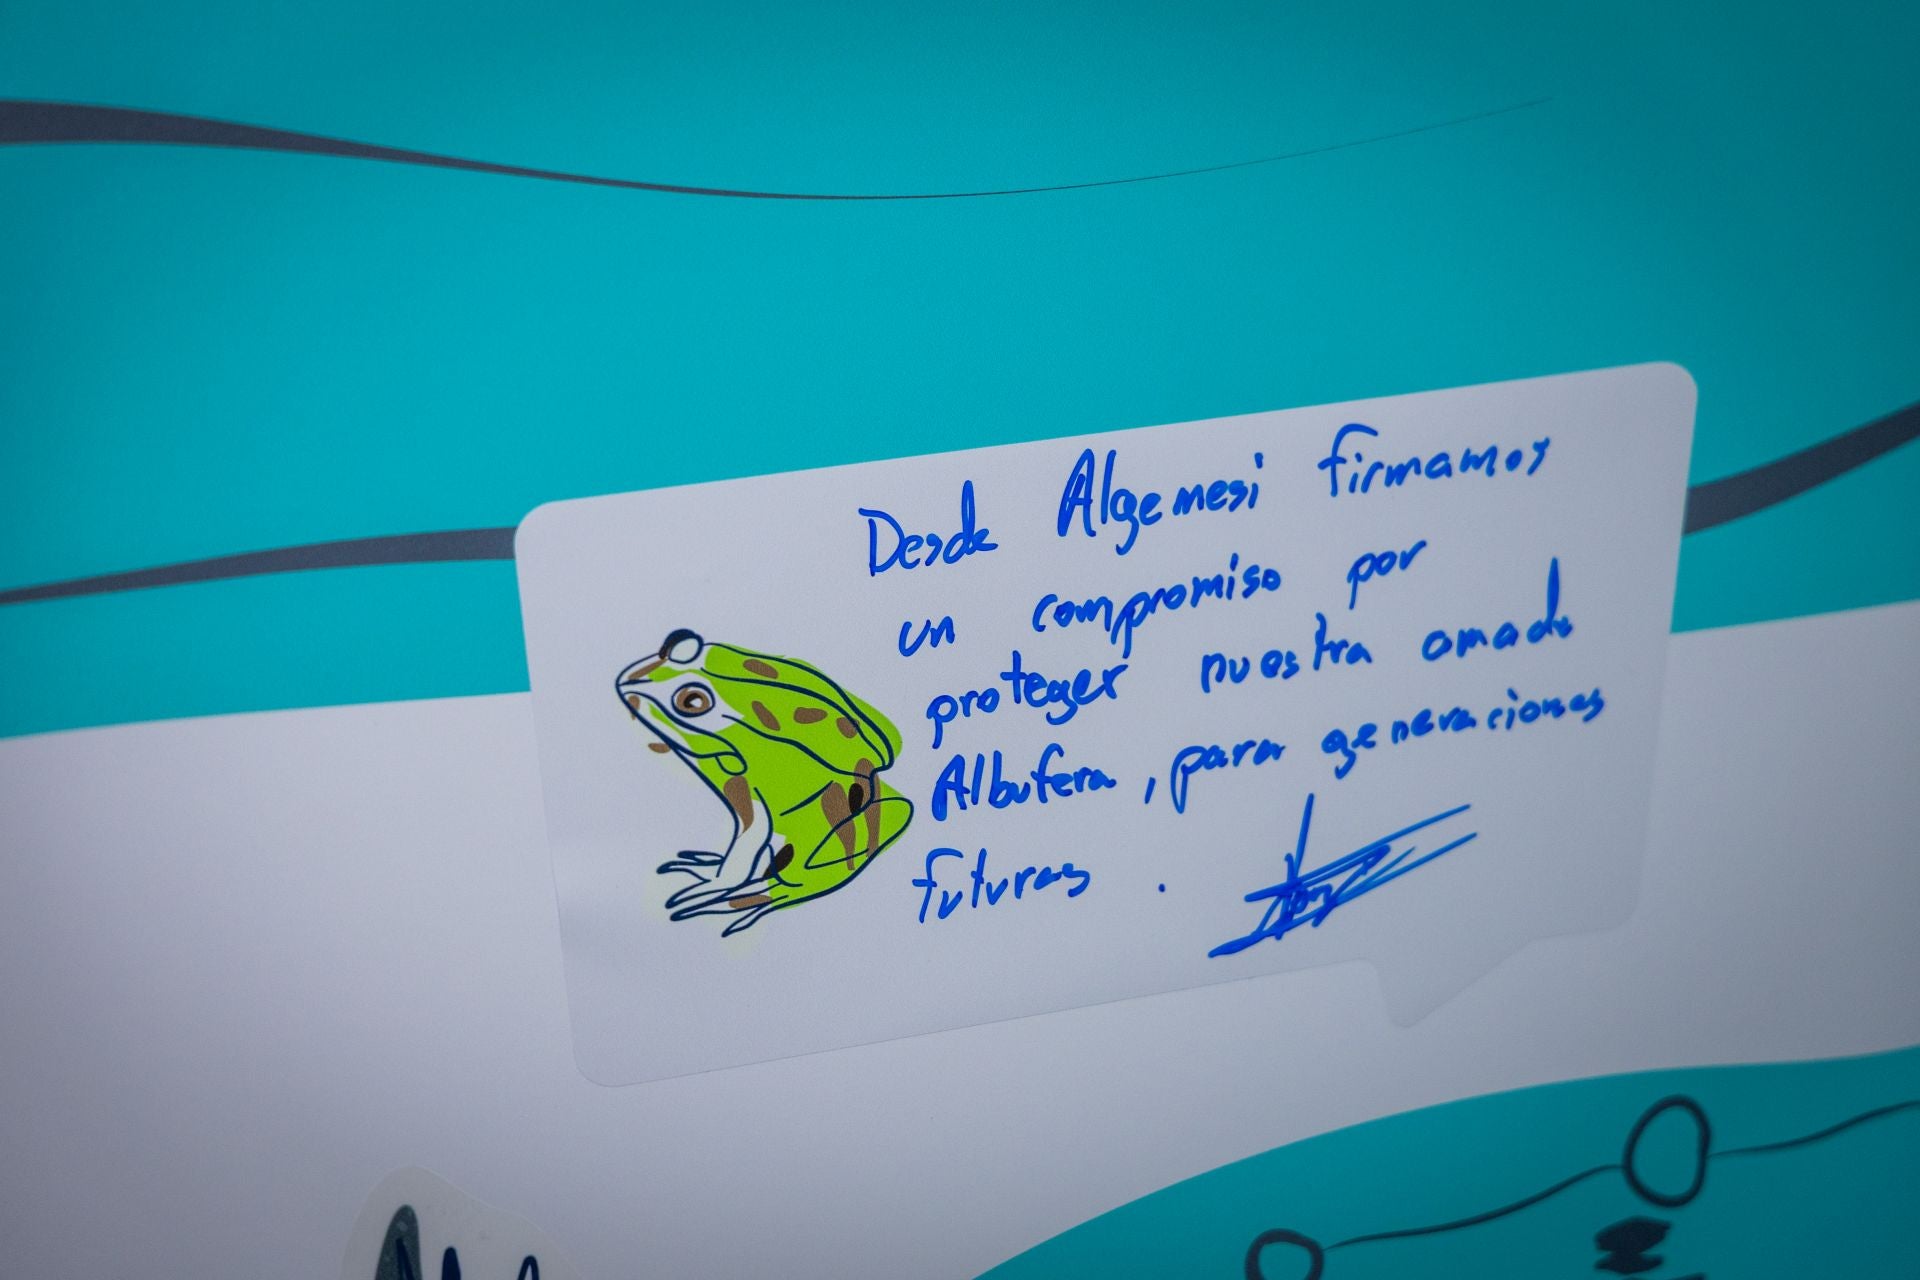 Desde Algemesi firmamos
un compromiso por
proteger nuestra amada
Albufera, para generaciones
futuras.